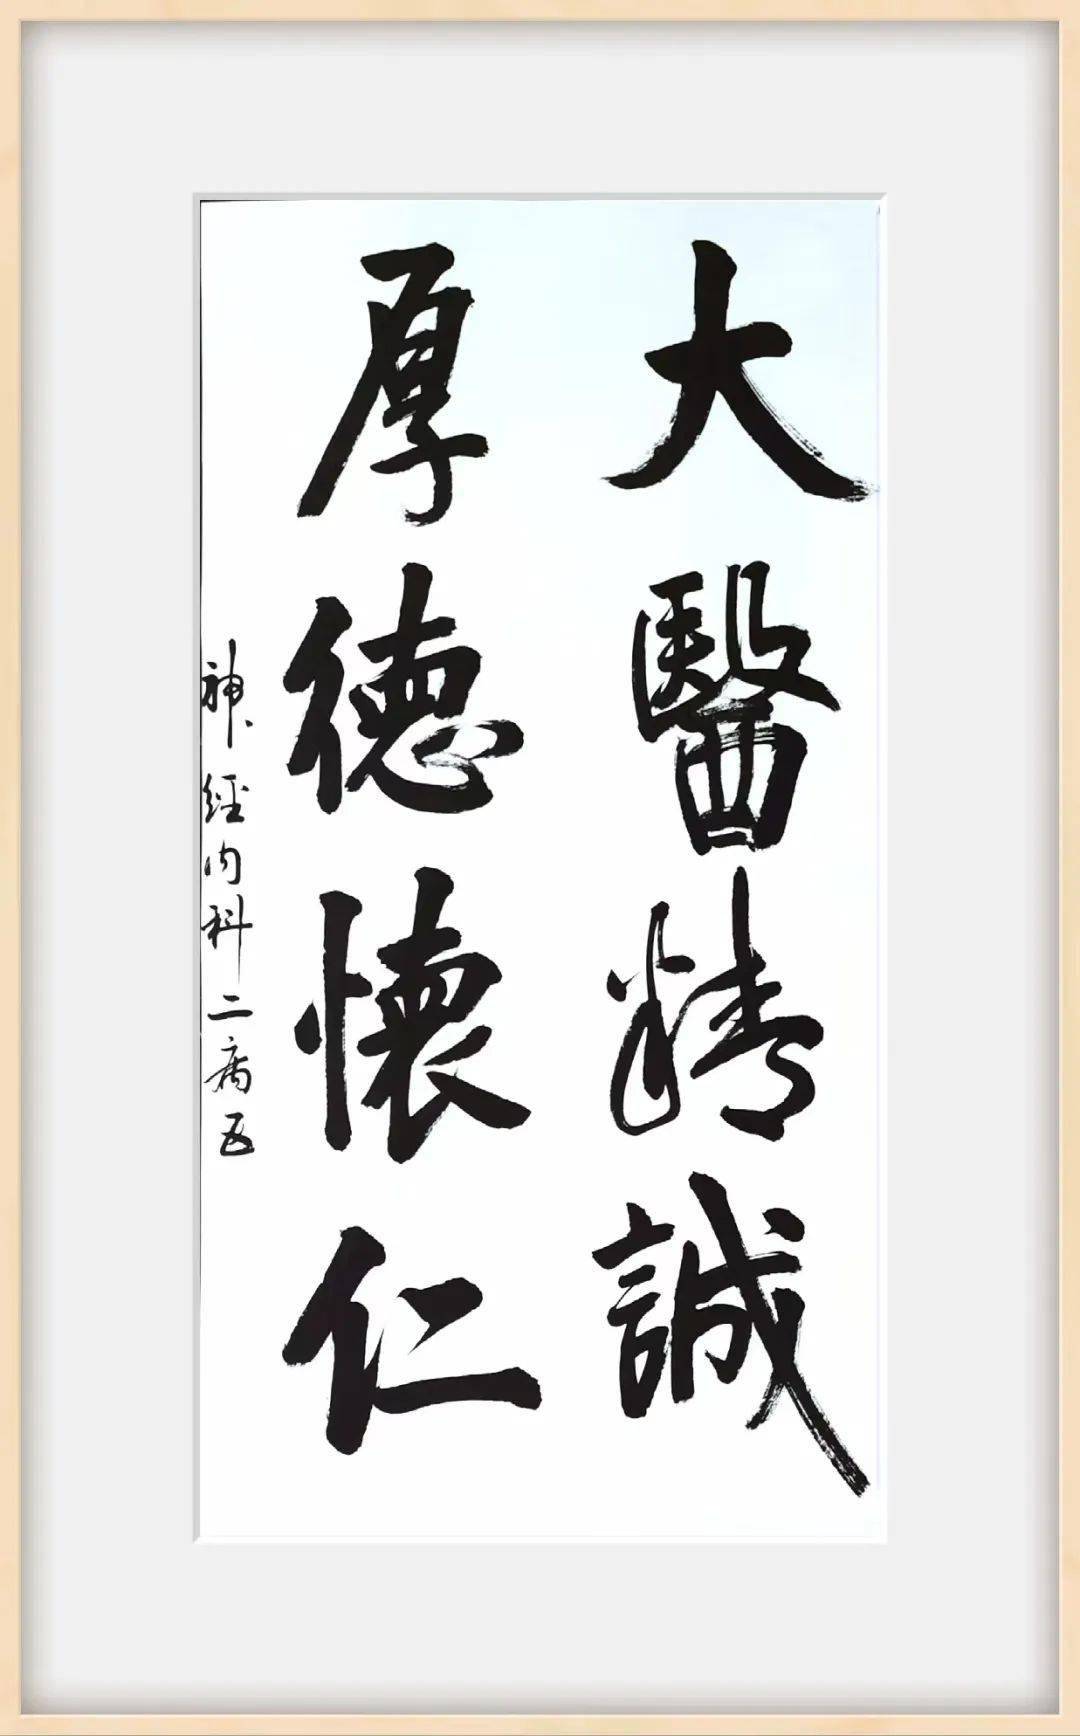 大醫精誠
厚德懷仁
神經内科二病区